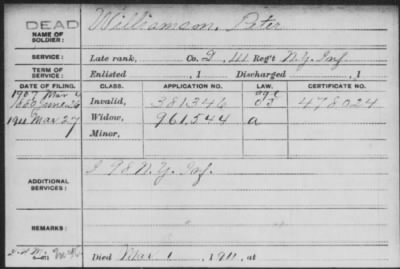 DEAD
NAME OF SOLDIER: Williamson, Peter
SERVICE: Late rank, Co. I, 44 Reg't N.Y. Inf.
TERM OF SERVICE: Enlisted , 1 Discharged , 1
DATE OF FILING. CLASS. APPLICATION NO. LAW. CERTIFICATE NO.
1907 Mar 4 age
1880 June 26 Invalid, 381346 478024
1911 Mar 27 Widow, 961544 a
Minor,
ADDITIONAL SERVICES: I 98 N.Y. Inf.
REMARKS:
Died Mar 1 1911, at